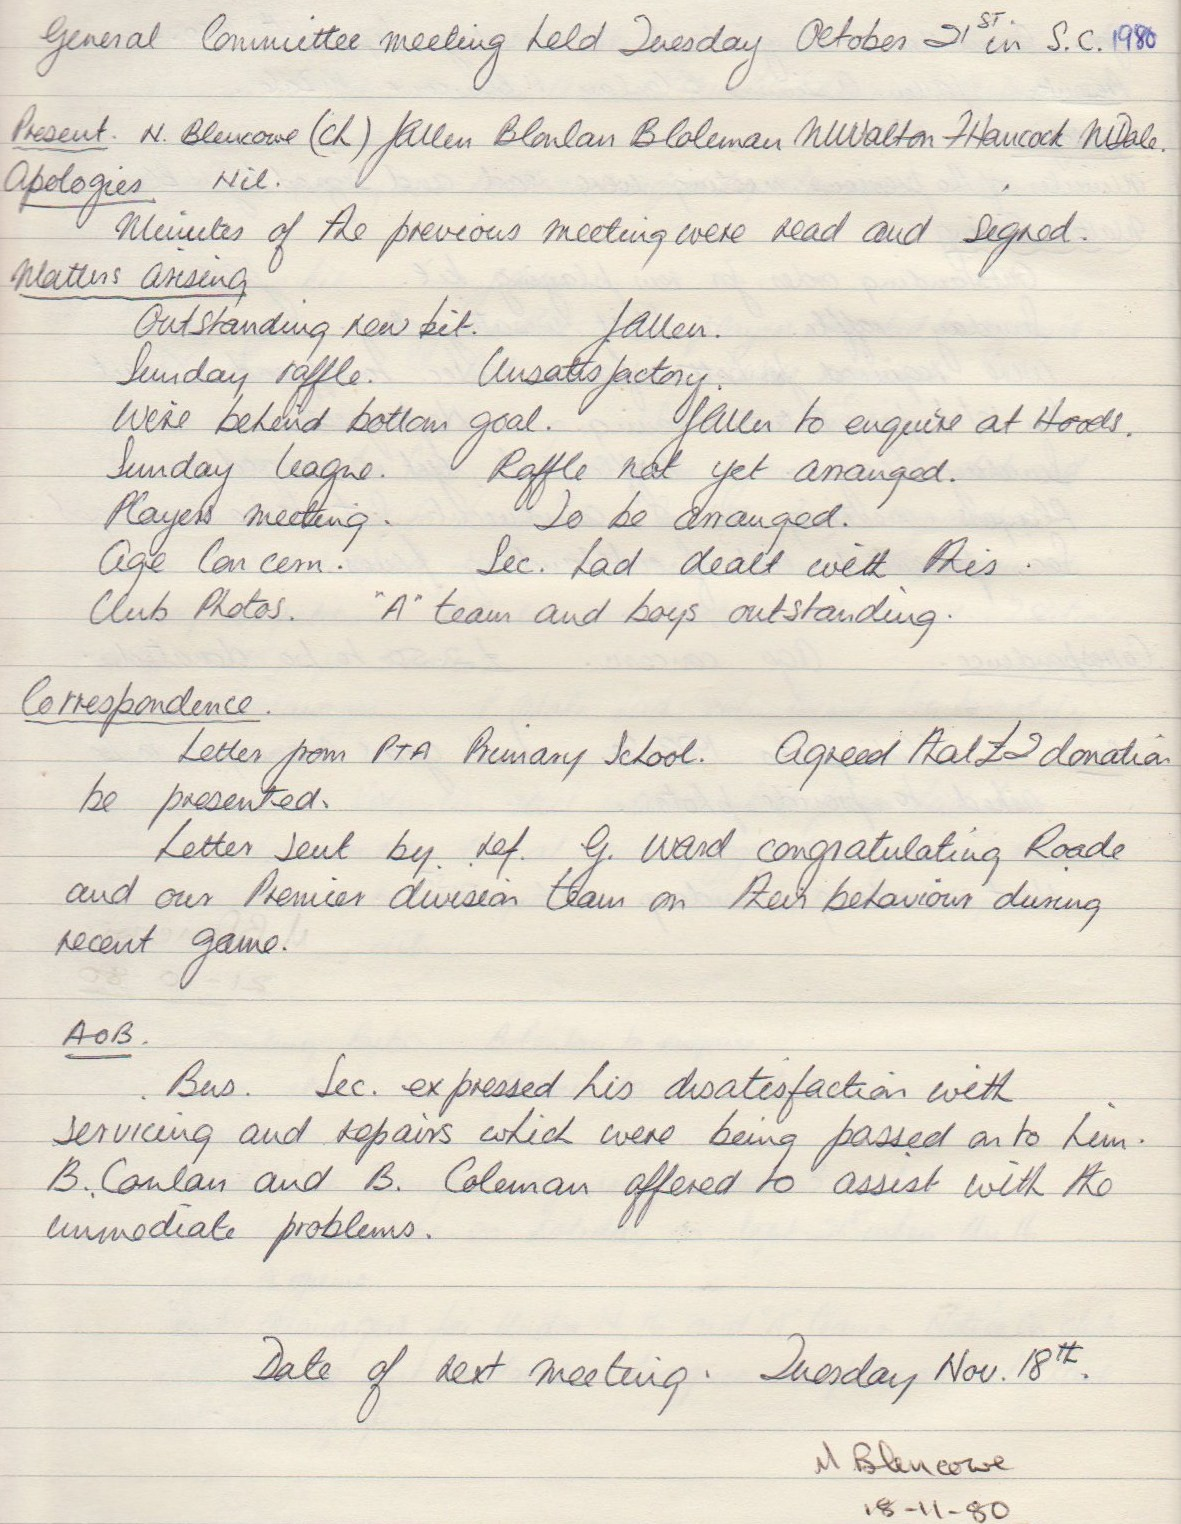 General Committee meeting held Tuesday October 21ST. in S.C. 1980
Present. N. Blencowe (Ch) J Allen B Conlan B Coleman M Walton F Hancock M Dale.
Apologies Nil.
Minutes of the previous meeting were read and signed.
Matters arising
Outstanding new kit. J Allen.
Sunday raffle. Unsatisfactory.
Wire behind bottom goal. J Allen to enquire at Hoods.
Sunday league. Raffle not yet arranged.
Players meeting. To be arranged.
Age Concern. Sec. had dealt with this.
Club Photos. "A" team and boys outstanding.
Correspondence.
Letter from PTA Primary School. Agreed that £2 donation
be presented.
Letter sent by ref. G. Ward congratulating Roade
and our Premier division team on their behaviour during
recent game.
AOB.
Bus. Sec. expressed his disatisfaction with
servicing and repairs which were being passed on to him.
B. Conlan and B. Coleman offered to assist with the
immediate problems.
Date of next meeting. Tuesday Nov. 18th.
N Blencowe
18-11-80